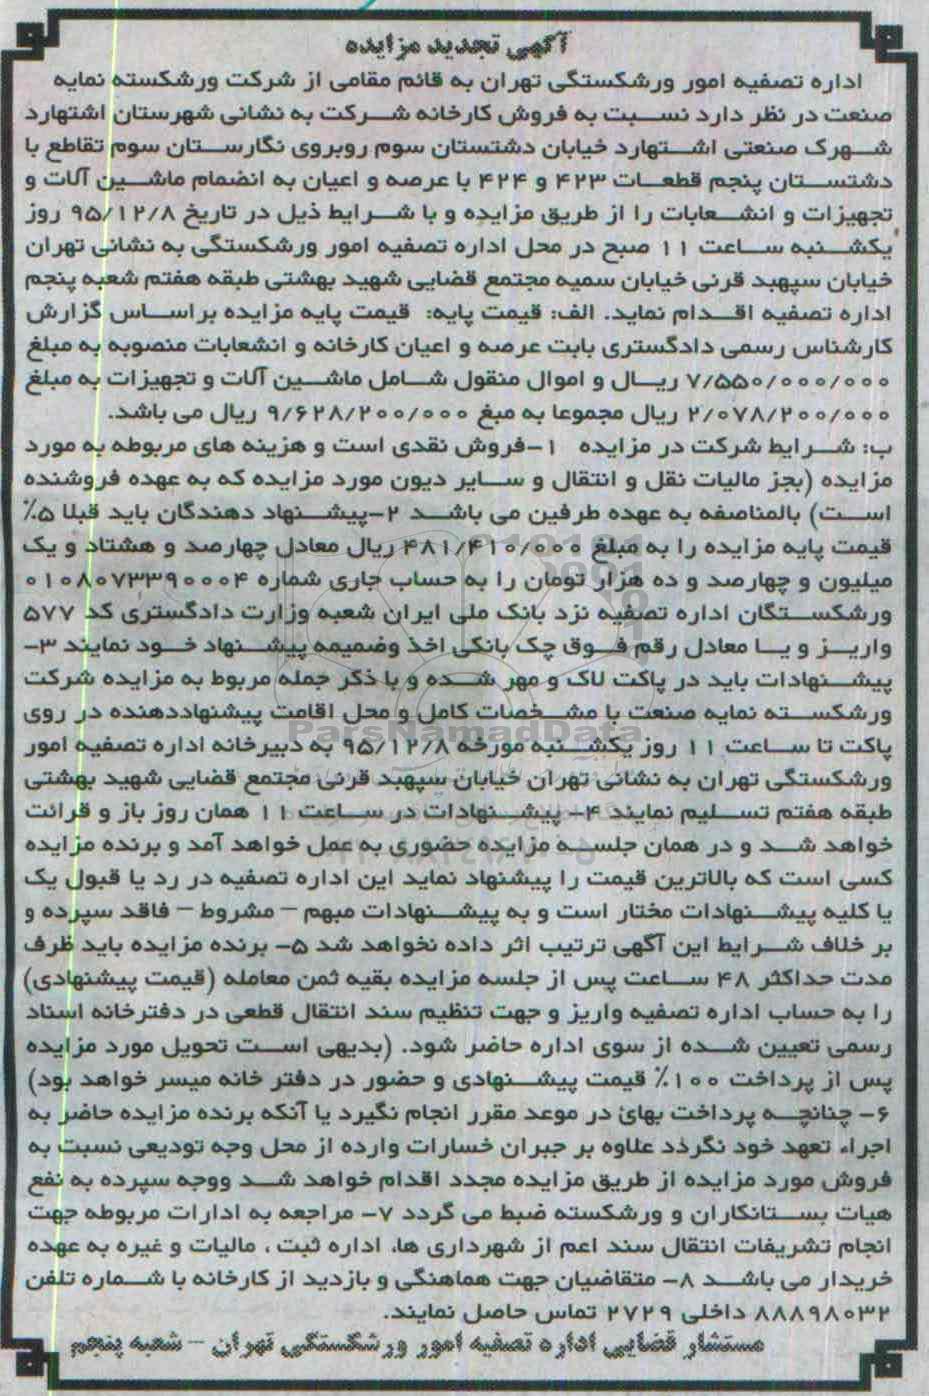 آگهی تجدید مزایده
اداره تصفیه امور ورشکستگی تهران به قائم مقامی از شرکت ورشکسته نمایه
صنعت در نظر دارد نسبت به فروش کارخانه شرکت به نشانی شهرستان اشتهارد
شهرک صنعتی اشتهارد خیابان دشتستان سوم روبروی نگارستان سوم تقاطع با
دشتستان پنجم قطعات ۴۲۳ و ۴۲۴ با عرصه و اعیان به انضمام ماشین آلات و
تجهیزات و انشعابات را از طریق مزایده و با شرایط ذیل در تاریخ ۹۵/۱۲/۸ روز
یکشنبه ساعت ۱۱ صبح در محل اداره تصفیه امور ورشکستگی به نشانی تهران
خیابان سپهبد قرنی خیابان سمیه مجتمع قضایی شهید بهشتی طبقه هفتم شعبه پنجم
اداره تصفیه اقدام نماید. الف: قیمت پایه: قیمت پایه مزایده براساس گزارش
کارشناس رسمی دادگستری بابت عرصه و اعیان کارخانه و انشعابات منصوبه به مبلغ
۷/۵۵۰/۰۰۰/۰۰۰ ریال و اموال منقول شامل ماشین آلات و تجهیزات به مبلغ
۲/۰۷۸/۲۰۰/۰۰۰ ریال مجموعا به مبغ ۹/۶۲۸/۲۰۰/۰۰۰ ریال می باشد.
ب: شرایط شرکت در مزایده ۱-فروش نقدی است و هزینه های مربوطه به مورد
مزایده (بجز مالیات نقل و انتقال و سایر دیون مورد مزایده که به عهده فروشنده
است) بالمناصفه به عهده طرفین می باشد ۲-پیشنهاد دهندگان باید قبلا ۵٪
قیمت پایه مزایده را به مبلغ ۴۸۱/۴۱۰/۰۰۰ ریال معادل چهارصد و هشتاد و یک
میلیون و چهارصد و ده هزار تومان را به حساب جاری شماره ۰۱۰۸۰۷۳۳۹۰۰۰۴
ورشکستگان اداره تصفیه نزد بانک ملی ایران شعبه وزارت دادگستری کد ۵۷۷
واریز و یا معادل رقم فوق چک بانکی اخذ وضمیمه پیشنهاد خود نمایند ۳-
پیشنهادات باید در پاکت لاک و مهر شده و با ذکر جمله مربوط به مزایده شرکت
ورشکسته نمایه صنعت با مشخصات کامل و محل اقامت پیشنهاددهنده در روی
ParsNamadData
پاکت تا ساعت ۱۱ روز یکشنبه مورخه ۹۵/۱۲/۸ به دبیرخانه اداره تصفیه امور
ورشکستگی تهران به نشانی تهران خیابان سپهبد قرنی مجتمع قضایی شهید بهشتی
طبقه هفتم تسلیم نمایند ۴- پیشنهادات در ساعت ۱۱ همان روز باز و قرائت
خواهد شد و در همان جلسه مزایده حضوری به عمل خواهد آمد و برنده مزایده
کسی است که بالاترین قیمت را پیشنهاد نماید این اداره تصفیه در رد یا قبول یک
یا کلیه پیشنهادات مختار است و به پیشنهادات مبهم – مشروط – فاقد سپرده و
بر خلاف شرایط این آگهی ترتیب اثر داده نخواهد شد ۵- برنده مزایده باید ظرف
مدت حداکثر ۴۸ ساعت پس از جلسه مزایده بقیه ثمن معامله (قیمت پیشنهادی)
را به حساب اداره تصفیه واریز و جهت تنظیم سند انتقال قطعی در دفترخانه اسناد
رسمی تعیین شده از سوی اداره حاضر شود. (بدیهی است تحویل مورد مزایده
پس از پرداخت ۱۰۰٪ قیمت پیشنهادی و حضور در دفتر خانه میسر خواهد بود)
۶- چنانچه پرداخت بهائ در موعد مقرر انجام نگیرد یا آنکه برنده مزایده حاضر به
اجراء تعهد خود نگردد علاوه بر جبران خسارات وارده از محل وجه تودیعی نسبت به
فروش مورد مزایده از طریق مزایده مجدد اقدام خواهد شد ووجه سپرده به نفع
هیات بستانکاران و ورشکسته ضبط می گردد ۷- مراجعه به ادارات مربوطه جهت
انجام تشریفات انتقال سند اعم از شهرداری ها، اداره ثبت ، مالیات و غیره به عهده
خریدار می باشد ۸- متقاضیان جهت هماهنگی و بازدید از کارخانه با شماره تلفن
۸۸۸۹۸۰۳۲ داخلی ۲۷۲۹ تماس حاصل نمایند.
مستشار قضایی اداره تصفیه امور ورشگستگی تهران – شعبه پنجم